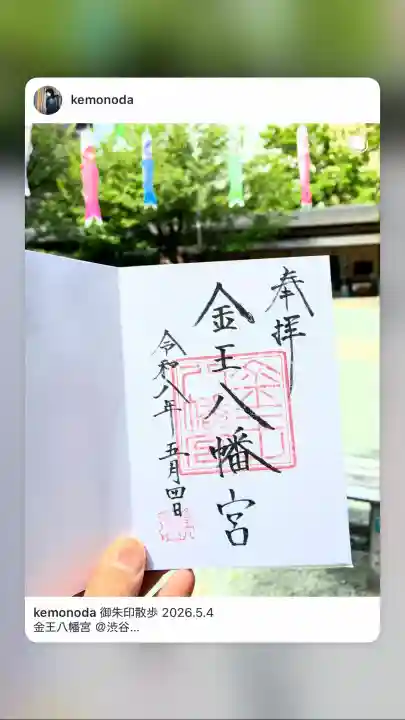 kemonoda
奉拝
金王八幡宮
令和八年 五月四日
kemonoda 御朱印散歩 2026.5.4
金王八幡宮 @渋谷...